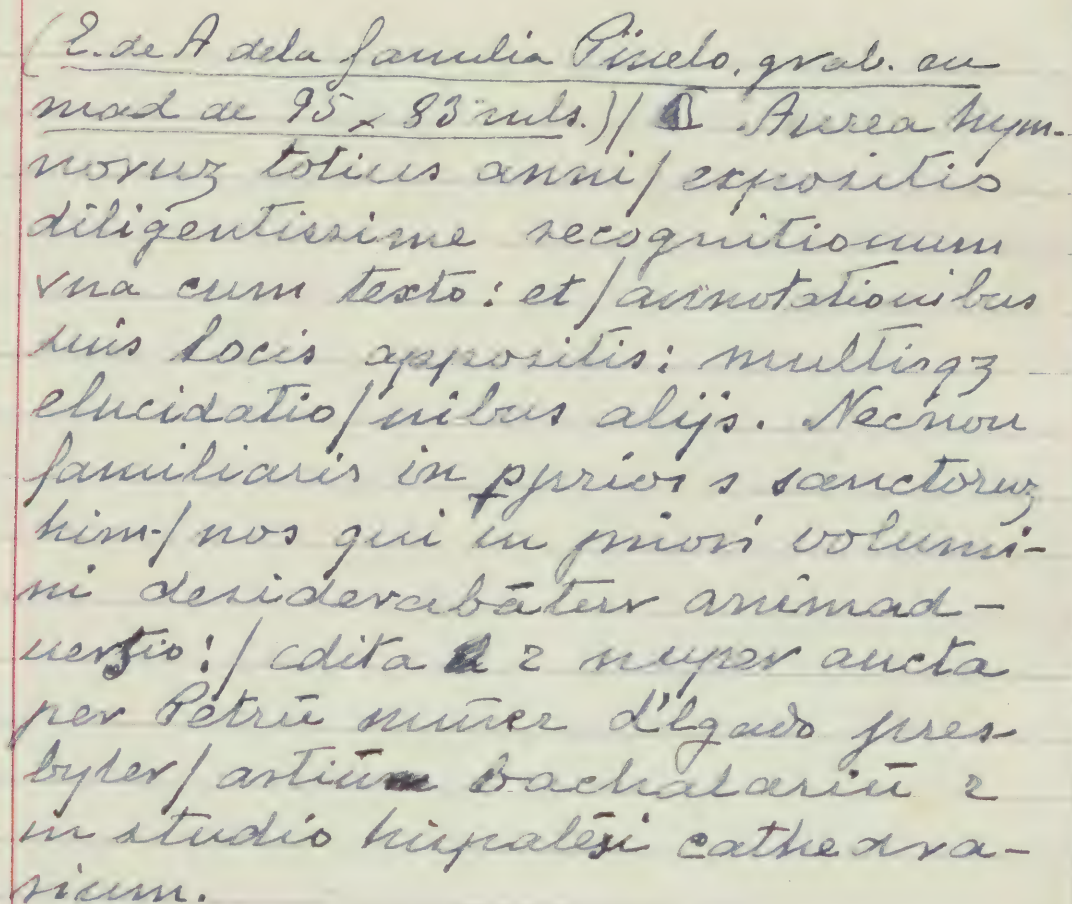 (E. de A dela familia Pinelo, grab. en
mad de 95 x 83 mls.)/ Aurea hym-
noruz totius anni/ expositio
diligentissime recognitionum
vna cum texto: et/annotationibus
suis locis appositis: multisqz
elucidatio/nibus alijs. Necnon
familiaris in pprios s sanctoruz
him-/nos qui in priori volumi-
ni desiderabātur animad-
uersio:/ edita 2 nuper aucta
per Petrū nuñez d'lgado pres-
byter/ artium bachalariū 2
in studio hispalēsi cathedra-
rium.